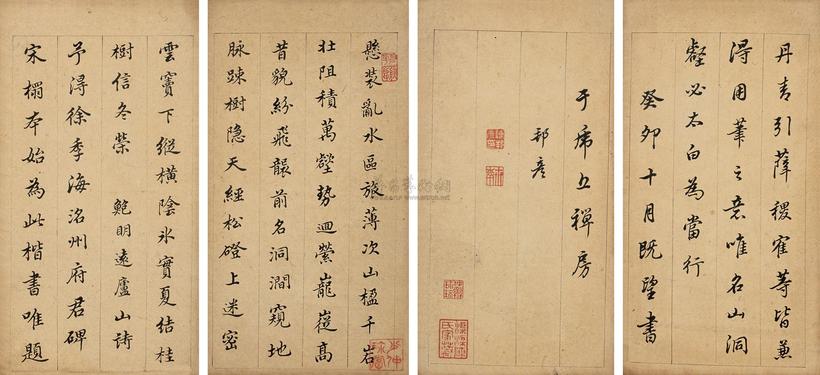 懸裝亂水區旅薄次山楹千岩
壯阻積萬壑勢迴縈巃嵸高
昔貌紛飛襲前名洞澗窺地
脉踈樹隐天經松磴上迷密
雲竇下縱橫陰氷實夏結桂
樹信冬榮 鮑明遠廬山詩
予得徐季海洺州府君碑
宋榻本始為此楷書唯題
丹青引薛稷崔等皆兼
得用筆之意唯名山洞
壑必太白為當行
癸卯十月既望書
于乕丘禪房
邨彦